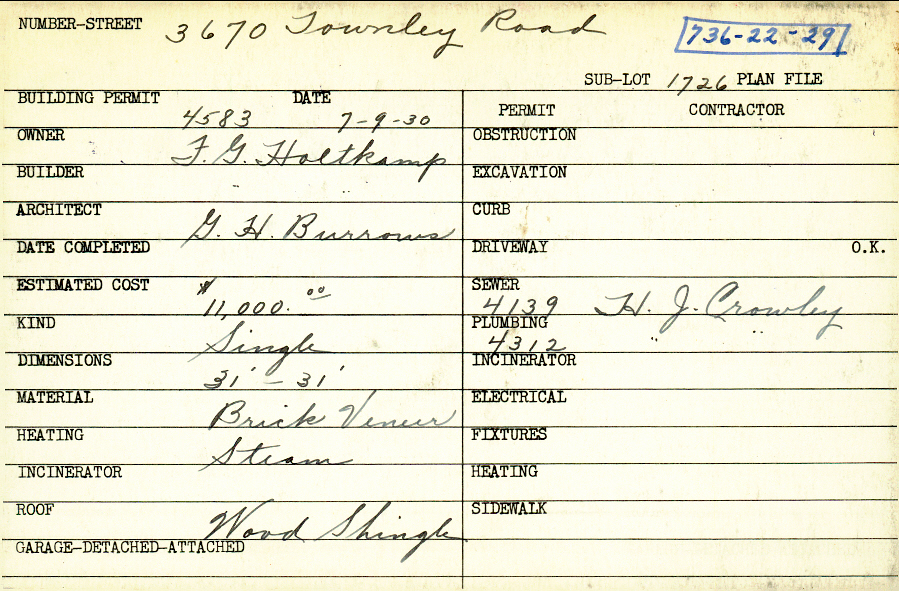 NUMBER-STREET 3670 Townley Road 736-22-29
SUB-LOT 1726 PLAN FILE
BUILDING PERMIT 4583 DATE 7-9-30
OWNER F. G. Holtkamp
BUILDER " "
ARCHITECT G. H. Burrows
DATE COMPLETED
ESTIMATED COST $11,000.00
KIND Single
DIMENSIONS 31' - 31'
MATERIAL Brick Veneer
HEATING Steam
INCINERATOR
ROOF Wood Shingle
GARAGE-DETACHED-ATTACHED
PERMIT CONTRACTOR
OBSTRUCTION
EXCAVATION
CURB
DRIVEWAY O.K.
SEWER 4139 H. J. Crowley
PLUMBING 4312 " "
INCINERATOR
ELECTRICAL
FIXTURES
HEATING
SIDEWALK